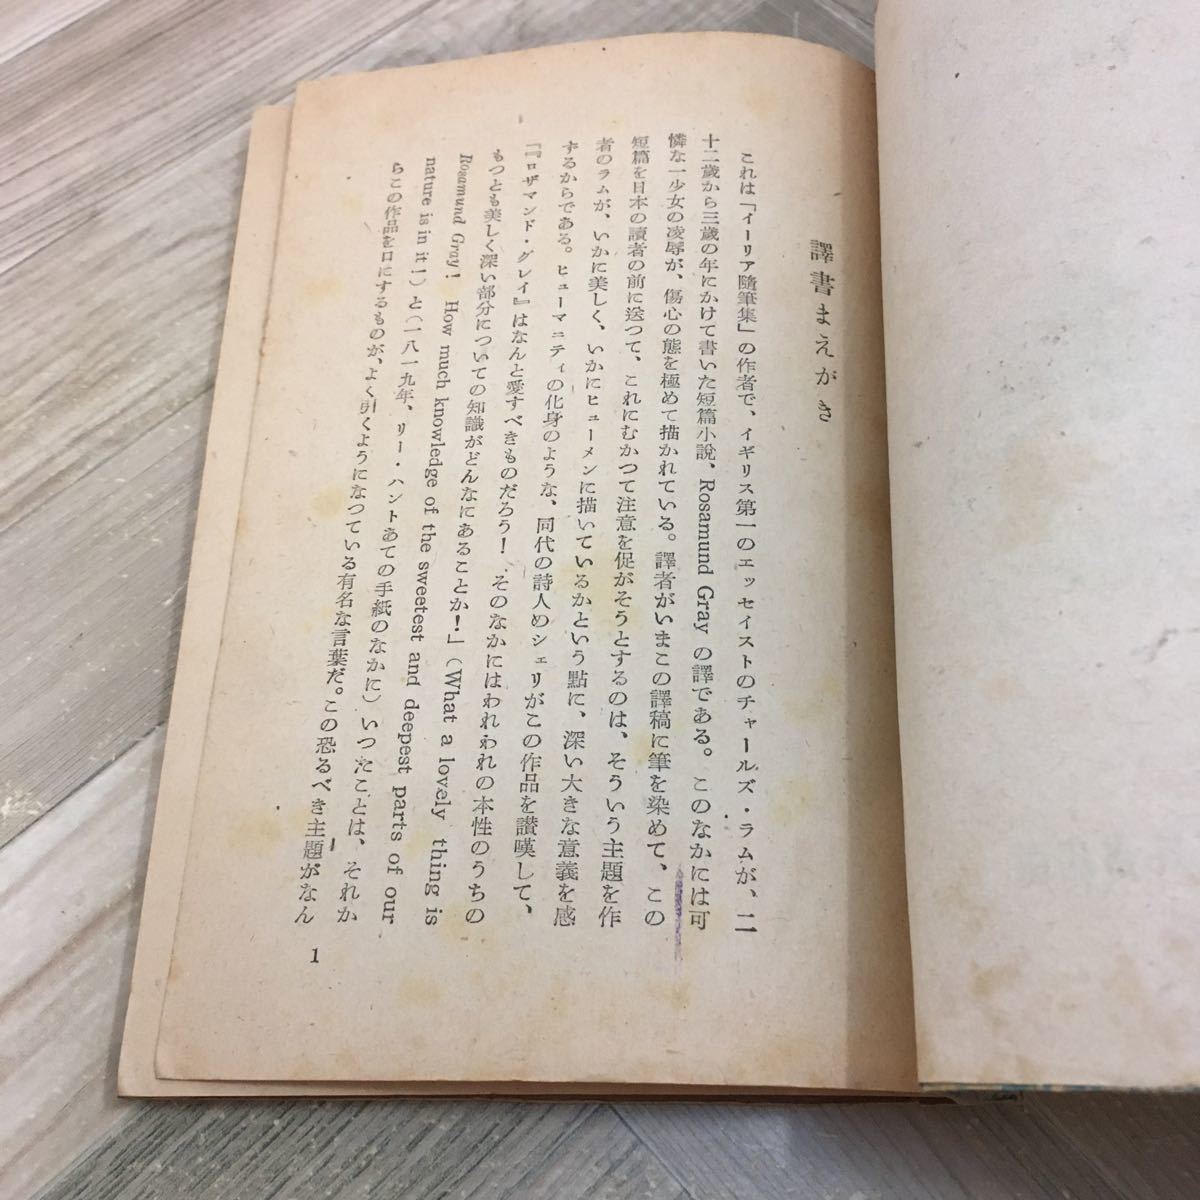 譯書まえがき
これは「イーリア隨筆集」の作者で、イギリス第一のエッセイストのチャールズ・ラムが、二
十二歲から三歲の年にかけて書いた短篇小說、Rosamund Gray の譯である。このなかには可
憐な一少女の凌辱が、傷心の態を極めて描かれている。譯者がいまこの譯稿に筆を染めて、この
短篇を日本の讀者の前に送つて、これにむかつて注意を促がそうとするのは、そういう主題を作
者のラムが、いかに美しく、いかにヒューメンに描いているかという點に、深い大きな意義を感
ずるからである。ヒューマニティの化身のような、同代の詩人のシェリがこの作品を讃嘆して、
『『ロザマンド・グレイ』はなんと愛すべきものだろう！そのなかにはわれわれの本性のうちの
もつとも美しく深い部分についての知識がどんなにあることか！」(What a lovely thing is
Rosamund Gray! How much knowledge of the sweetest and deepest parts of our
nature is in it!) と(一八一九年、リー・ハントあての手紙のなかに）いつたことは、それか
らこの作品を口にするものが、よく引くようになつている有名な言葉だ。この恐るべき主題がなん
1